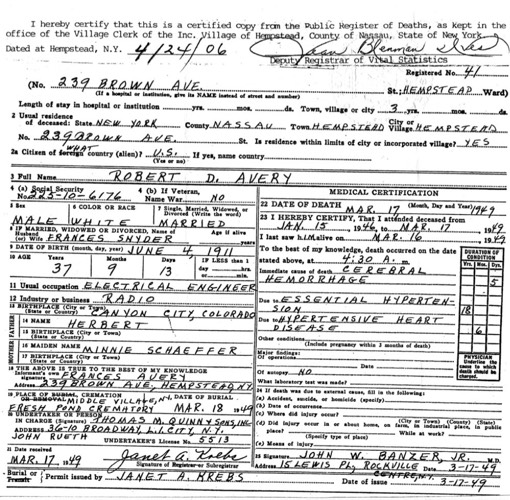 I hereby certify that this is a certified copy from the Public Register of Deaths, as kept in the
office of the Village Clerk of the Inc. Village of Hempstead, County of Nassau, State of New York.
Dated at Hempstead, N.Y. 4/24/06
Deputy Registrar of Vital Statistics
Registered No. 41
(No. 239 BROWN AVE. St.; HEMPSTEAD Ward)
(If a hospital or institution, give its NAME instead of street and number)
Length of stay in hospital or institution yrs. mos. ds. Town, village or city 3 yrs. mos. ds.
2 Usual residence
of deceased: State NEW YORK County NASSAU Town HEMPSTEAD City or Village HEMPSTEAD
No. 239 BROWN AVE. St. Is residence within limits of city or incorporated village? YES
2a Citizen of foreign country (alien)? WHAT U.S. If yes, name country
(Yes or no)
3 Full Name ROBERT D. AVERY
4 (a) Social Security
No. 225-10-6176
4 (b) If Veteran,
Name War. NO
5 Sex
MALE
6 COLOR OR RACE
WHITE
7 Single, Married, Widowed,
or Divorced (Write the word)
MARRIED
8 IF MARRIED, WIDOWED or DIVORCED, Name of
Husband
(or) Wife FRANCES SNYDER
Age if alive
years
9 DATE OF BIRTH (month, day, year) JUNE 4, 1911
10 AGE
37 9 13
IF LESS than 1
day hrs.
or min.
11 Usual occupation ELECTRICAL ENGINEER
12 Industry or business RADIO
13 BIRTHPLACE (City or Town)
(State or Country) CANYON CITY, COLORADO
FATHER
14 NAME HERBERT
15 BIRTHPLACE (City or Town)
(State or Country)
MOTHER
16 MAIDEN NAME MINNIE SCHAEFFER
17 BIRTHPLACE (City or Town)
(State or Country)
18 THE ABOVE IS TRUE TO THE BEST OF MY KNOWLEDGE
Informant's own Signature FRANCES AVERY
Address 239 BROWN AVE, HEMPSTEAD, N.Y.
19 PLACE OF BURIAL, CREMATION
OR REMOVAL MIDDLE VILLAGE, N.Y.
FRESH POND CREMATORY
DATE OF BURIAL
MAR. 18 1949
20 UNDERTAKER OR PERSON
IN CHARGE (Signature) THOMAS M. QUINN & SONS, INC.
ADDRESS 36-10 BROADWAY, L.I. CITY, N.Y.
JOHN RUETH UNDERTAKER'S License No. 5513
21 Date received
MAR. 17 1949
Janet A. Krebs
Signature of Registrar or Subregistrar
Burial or
Transit Permit issued by JANET A. KREBS
MEDICAL CERTIFICATION
22 DATE OF DEATH MAR. 17 (Month, Day and Year) 1949
23 I HEREBY CERTIFY, That I attended deceased from
JAN. 15, 1946, to MAR. 17, 1949
I last saw h.IM alive on MAR. 16 1949
To the best of my knowledge, death occurred on the date
stated above, at 4:30 A. m.
DURATION OF
CONDITION
Yrs. Mos. Dys.
Immediate cause of death CEREBRAL
HEMORRHAGE 5
Due to ESSENTIAL HYPERTEN-
SION 18
Due to HYPERTENSIVE HEART
DISEASE 6
Other conditions
(Include pregnancy within 3 months of death)
Major findings:
Of operations Date
Of autopsy NO
What laboratory test was made?
PHYSICIAN
Underline
the cause to
which death
should be
charged.
24 If death was due to external cause, fill in the following:
(a) Accident, suicide, or homicide (specify)
(b) Date of occurrence
(c) Where did injury occur?
(City or Town) (County) (State)
(d) Did injury occur in or about home, on farm, in industrial place, in public
place? While at work?
(Specify type of place)
(e) Means of injury
25 Signature JOHN W. BANZER, JR. M.D.
Address 15 LEWIS PL., ROCKVILLE CENTRE, N.Y. 3-17-49